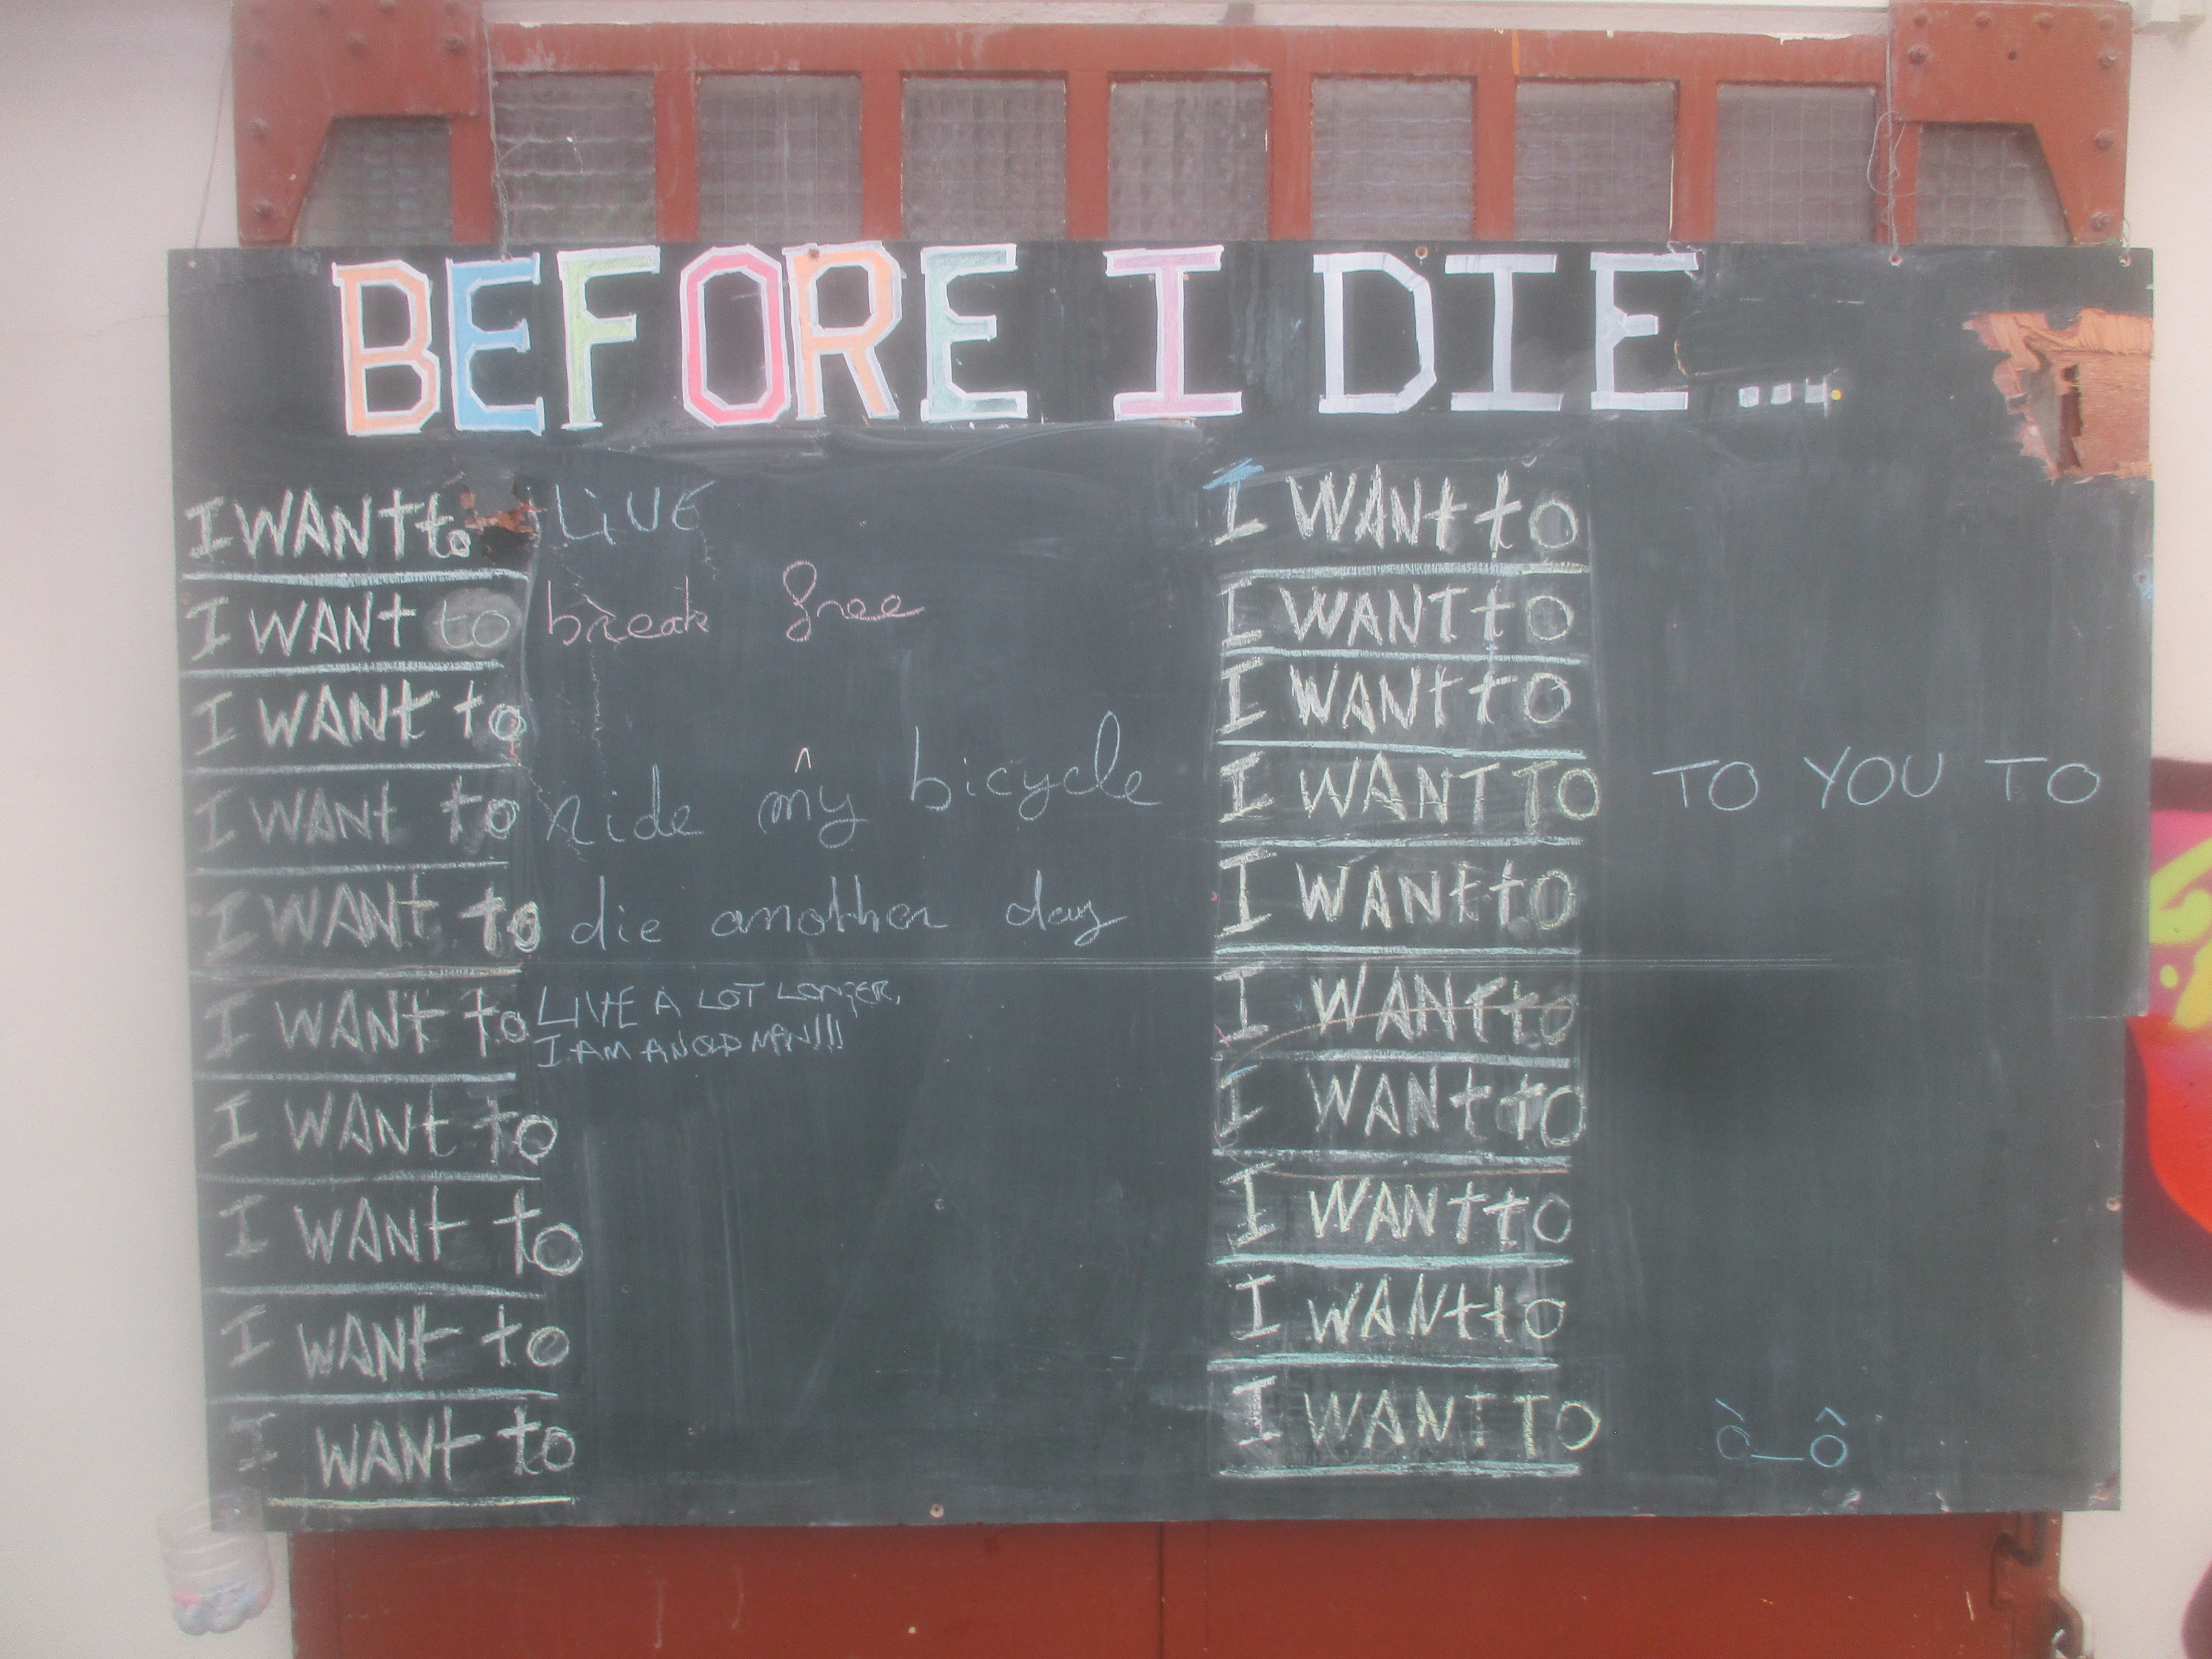 BEFORE I DIE....
I WANT to LIVE
I WANT to break free
I WANT to
I WANT to ride my bicycle
I WANT to die another day
I WANT to LIVE A LOT LONGER,
I AM AN OLD MAN!!!
I WANT to
I WANT to
I WANT to
I WANT to
I WANT to
I WANT to
I WANT to
I WANT TO TO YOU TO
I WANT to
I WANT to
I WANT to
I WANT to
I WANT to
I WANT TO ò_ô